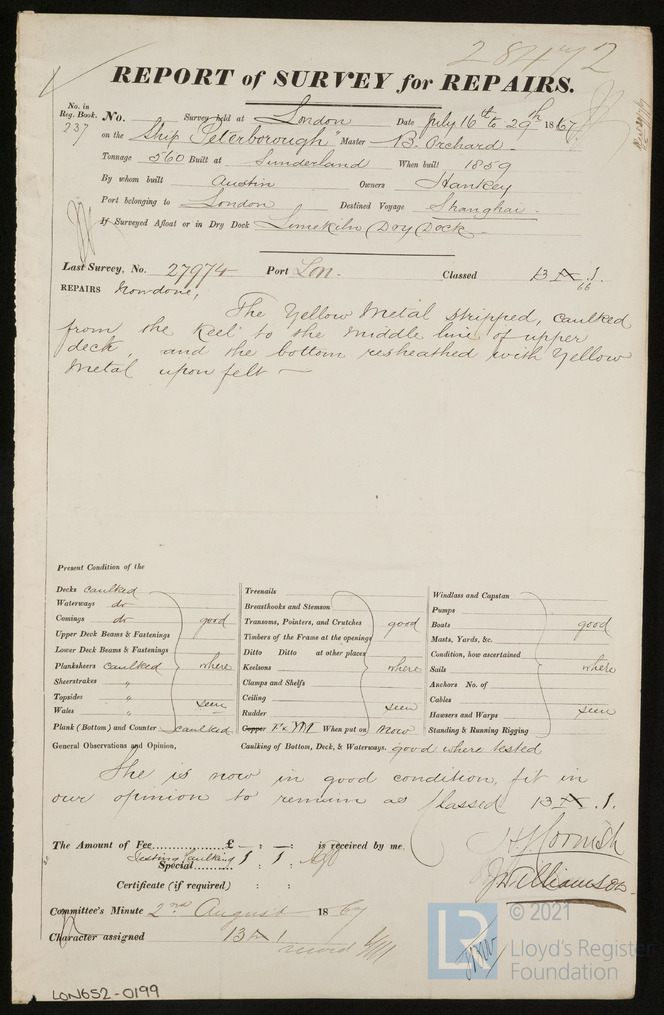 28472
REPORT of SURVEY for REPAIRS.
No. in Reg. Book. 237
No. Survey held at London Date July 16th to 29th 1867
on the Ship "Peterborough" Master B. Orchard
Tonnage 560 Built at Sunderland When built 1859
By whom built Austin Owners Hankey
Port belonging to London Destined Voyage Shanghai
If Surveyed Afloat or in Dry Dock Limekiln Dry Dock
Last Survey, No. 27974 Port Lon. Classed 13 1. 66
REPAIRS now done,
The Yellow Metal stripped, caulked
from the Keel to the middle line of upper
deck, and the bottom resheathed with Yellow
Metal upon felt —
Present Condition of the
Decks caulked
Waterways do
Comings do good
Upper Deck Beams & Fastenings
Lower Deck Beams & Fastenings
Planksheers caulked where
Sheerstrakes "
Topsides "
Wales " seen
Plank (Bottom) and Counter caulked
Treenails
Breasthooks and Stemson
Transoms, Pointers, and Crutches good
Timbers of the Frame at the openings
Ditto Ditto at other places
Keelsons where
Clamps and Shelfs
Ceiling
Rudder seen
Copper YM When put on now
Windlass and Capstan
Pumps
Boats good
Masts, Yards, &c.
Condition, how ascertained
Sails where
Anchors No. of
Cables
Hawsers and Warps seen
Standing & Running Rigging
General Observations and Opinion, Caulking of Bottom, Deck, & Waterways. good where tested
She is now in good condition, fit in
our opinion to remain as Classed 13 1.
The Amount of Fee............£ - : - : is received by me.
Testing Caulking
Special............ 1 : 1 :
H J Cornish
Certificate (if required) : :
J Williamson
Committee's Minute 2nd August 1867
Character assigned 13 1
© 2021
LR
Lloyd's Register
Foundation
LON652-0199